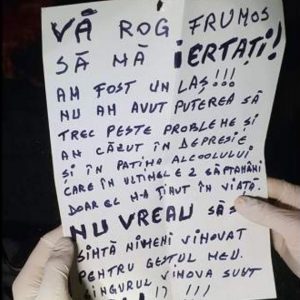 VĂ ROG FRUMOS
SĂ MĂ IERTAȚI!
AM FOST UN LAȘ!!!
NU AM AVUT PUTEREA SĂ
TREC PESTE PROBLEME ȘI
AM CĂZUT ÎN DEPRESIE
ȘI ÎN PATIMA ALCOOLULUI
CARE ÎN ULTIMELE 2 SĂPTAMÂNI
DOAR EL M-A ȚINUT ÎN VIAȚĂ.
NU VREAU SĂ SE
SIMTĂ NIMENI VINOVAT
PENTRU GESTUL MEU.
SINGURUL VINOVAT SUNT
!!!